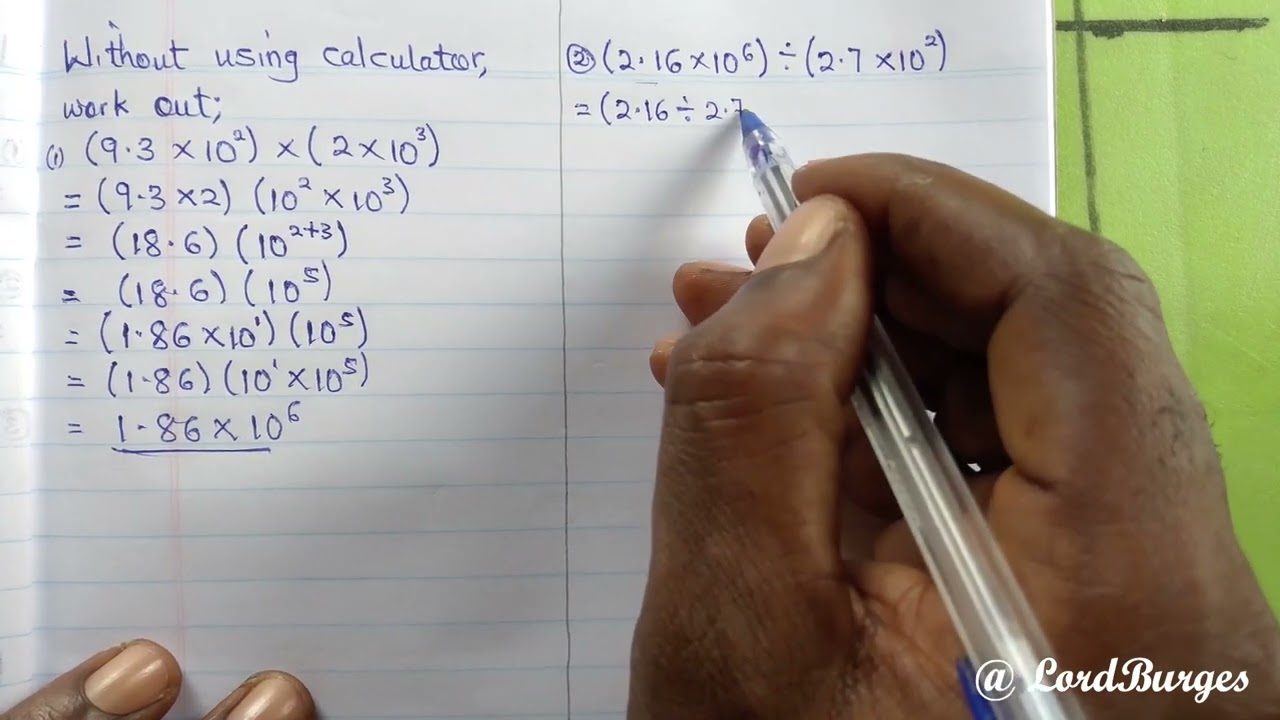 Without using calculator,
work out;
(1) (9.3 × 10²) × (2 × 10³)
= (9.3 × 2) (10² × 10³)
= (18.6) (10²⁺³)
= (18.6) (10⁵)
= (1.86 × 10¹) (10⁵)
= (1.86) (10¹ × 10⁵)
= 1.86 × 10⁶
② (2.16 × 10⁶) ÷ (2.7 × 10²)
= (2.16 ÷ 2.7
@ LordBurges